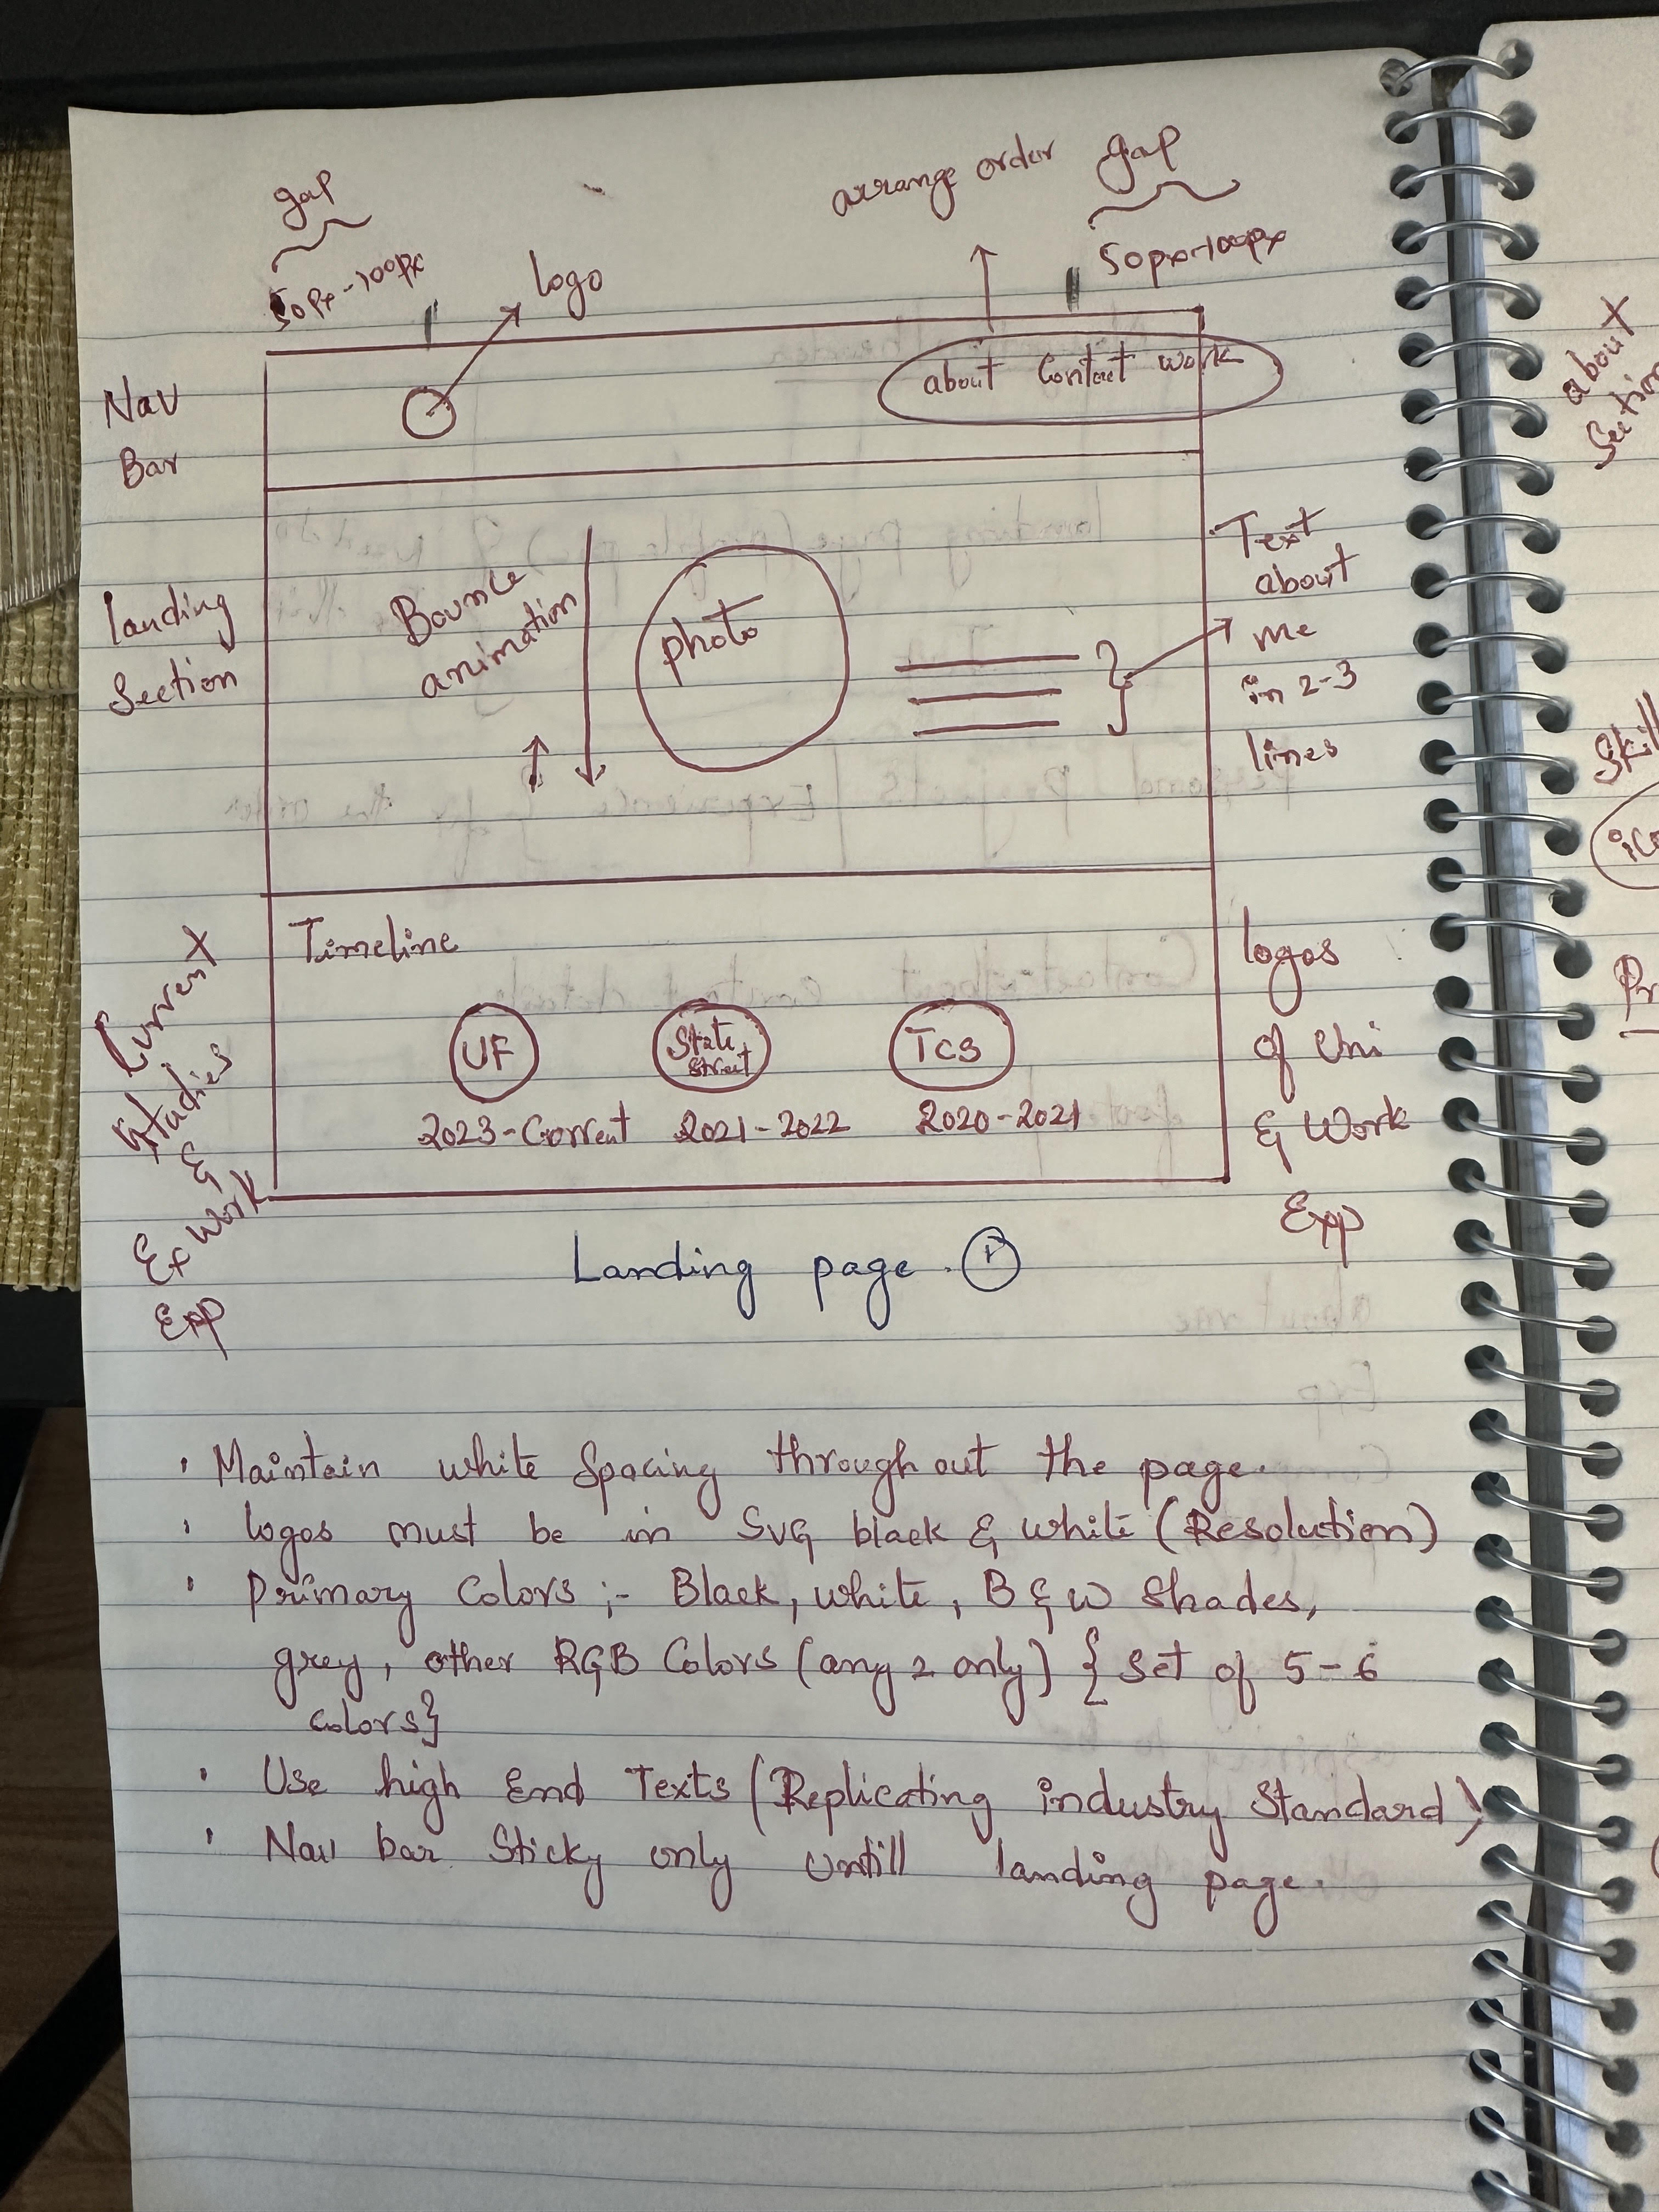 gap
50px-100px
logo
arrange order
gap
50px-100px
Nav
Bar
about Contact work
Landing
Section
Bounce
animation
photo
Text
about
me
in 2-3
lines
Timeline
Current
Studies
&
Ex Work
Exp
UF
State
Street
TCS
2023-Current 2021-2022 2020-2021
logos
of Uni
& Work
Exp
Landing page. 1
• Maintain white Spacing throughout the page.
• logos must be in SVG black & white (Resolution)
• Primary Colors :- Black, white, B & W Shades,
grey, other RGB Colors (any 2 only) { Set of 5-6
colors}
• Use high End Texts (Replicating industry Standard)
• Nav bar Sticky only untill landing page.
about
Section
Skill